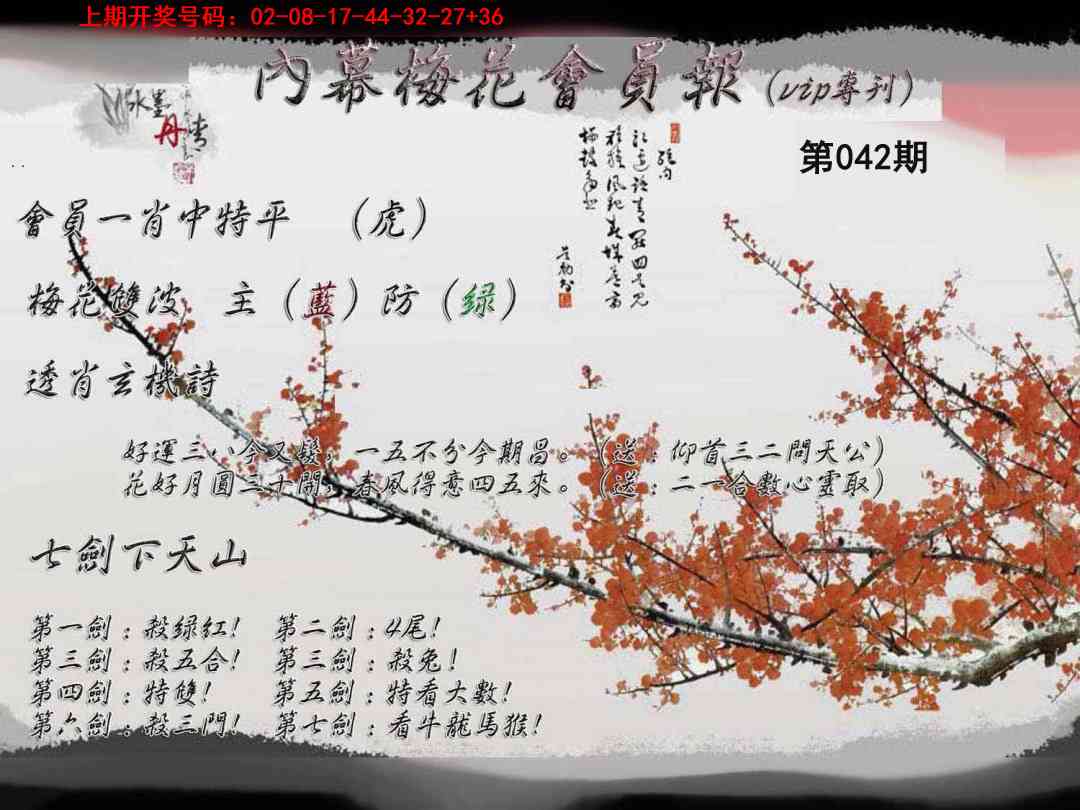 上期开奖号码：02-08-17-44-32-27+36
內幕梅花會員報（vip專刊）
水墨
丹青
第042期
會員一肖中特平 （虎）
梅花雙波 主（藍）防（绿）
透肖玄機詩
好運三八今又髮，一五不分今期昌。（送：仰首三二問天公）
花好月圓三十開，春風得意四五來。（送：二一合數心靈取）
七劍下天山
第一劍：殺绿红！ 第二劍：4尾！
第三劍：殺五合！ 第三劍：殺兔！
第四劍：特雙！ 第五劍：特看大數！
第六劍：殺三門！ 第七劍：看牛龍馬猴！